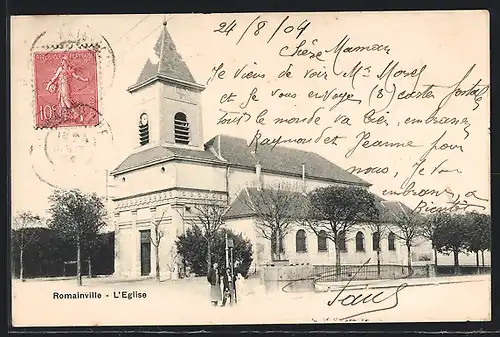 24/8/04
Chère Maman
Je viens de voir Mr Morel
et je vous envoye (8) cartes postales
tout le monde va bien, embrassez
Raymond et Jeanne pour
moi, Je t'en
embrasse
RÉPUBLIQUE FRANÇAISE
10
Romainville - L'Eglise